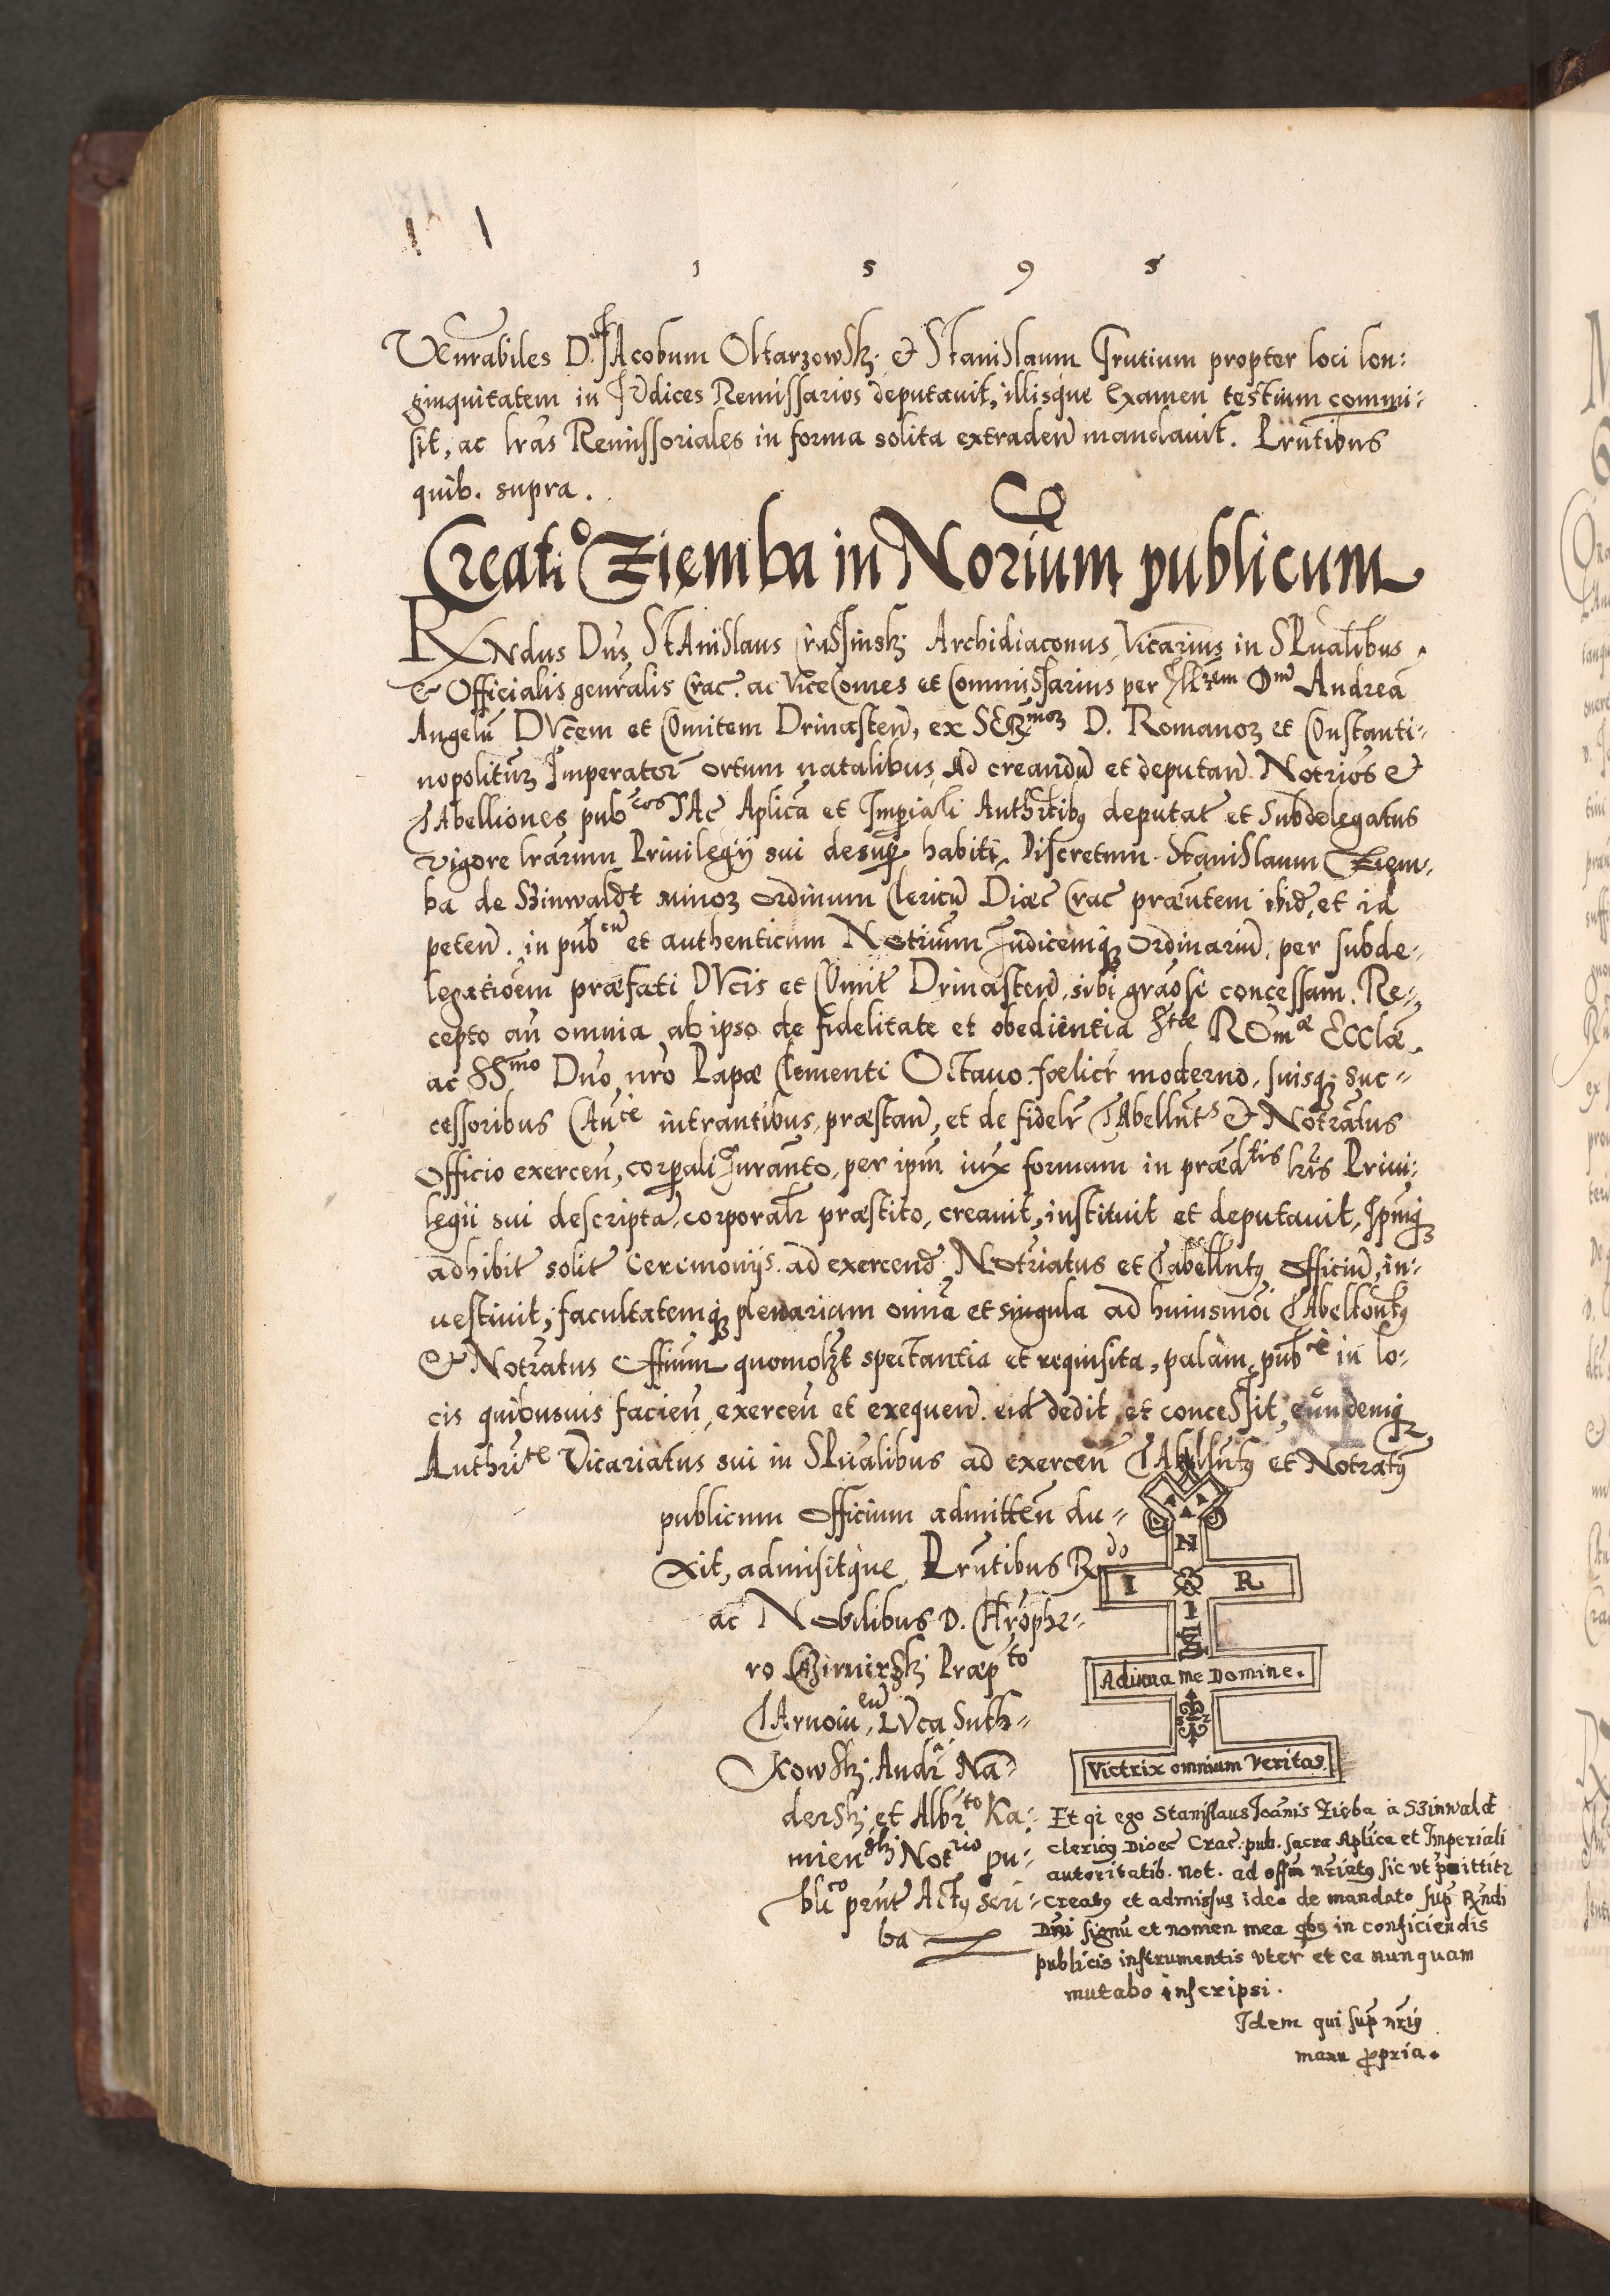 1 5 9 5
Venrabiles D. Jacobum Oltarzowskj & Stanislaum Frutium propter loci lon:
ginquitatem in Judices Remissarios deputauit, illisque Examen testium commi:
sit, ac lras Remissoriales in forma solita extraden mandauit. Prntibus
quib. supra.
Creatio Ziemba in Norium publicum
Rxndus Dns Stanislaus Crassinskj Archidiaconus, Vicarius in SPualibus
& Officialis genralis Crac. ac ViceComes et Commissarius per Illrem Dnm Andream
Angelu Ducem et Comitem Drinasten, ex SERmoꝝ D. Romanoꝝ et Constanti:
nopolitanꝝ Imperator ortum natalibus, Ad creandu et deputan Notrios &
Tabelliones pubcos Ac Aplica et Imperiali Authritibꝫ deputat et Subdelegatus
vigore lrarum Priuilegij sui desup habiti, Discretum Stanislaum Ziem-
ba de Szinwaldt minoꝝ ordinum Clericu Diæc Crac præntem ibid, et id
peten. in pubcu et authenticum Notrium Judicemqꝫ Ordinariu per subde-
legatioem præfati Ducis et Comit Drinasten, sibi graose concessam. Re-
cepto an omnia ab ipso de fidelitate et obedientia Stæ Romæ Ecclæ
ac SSmo Dno nro Papæ Clementi Octauo fœlicr moderno, suisqꝫ suc-
cessoribus Cancie intrantibus, præstan, et de fidelr Tabellnts & Notratus
Officio exercen, corporali Juranto, per ipm iux formam in prædtis lris Priui:
legii sui descripta, corporalr præstito, creauit, instituit et deputauit, Ipmqꝫ
adhibit solit Ceremonijs ad exercend Notriatus et Tabellntꝰ Officiu, in-
uestiuit, facultatemqꝫ plenariam omia et singula ad huiusmoi Tabelliontꝰ
& Notratus Offium quomolzt spectantia et requisita, palam, pubce in lo:
cis quibusuis facien, exercen et exequen. eid dedit et concessit, eundemqꝫ
Authrite Vicariatus sui in SPualibus ad exercen Tabellntꝰ et Notratꝰ
publicum Officium admitten du-
xit, admisitque, Prntibus Rxdo
ac Nobilibus D. Chrophe-
ro Præpto
Tarnouien, Luca Suth-
kowskj, Andr Na-
derskj, et Albrto Ka:
mienskj Notrio pu:
blico prnt Actꝰ scri:
ba
N
I R
I
S
Adiuua me Domine.
Victrix omnium Veritas
Et qi ego Stanislaus Joanis Zieba a Szinwaldt
clericꝰ Dioec Crac. pub. sacra Aplica et Imperiali
autoritatib. Not. ad offm nriatꝰ sic vt pmittitr
creatꝰ et admissus ideo de mandato sup Rxndi
Dni signu et nomen mea qbꝰ in conficiendis
publicis instrumentis vter et ea nunquam
mutabo inscripsi.
Idem qui sup nriꝰ
manu propria.